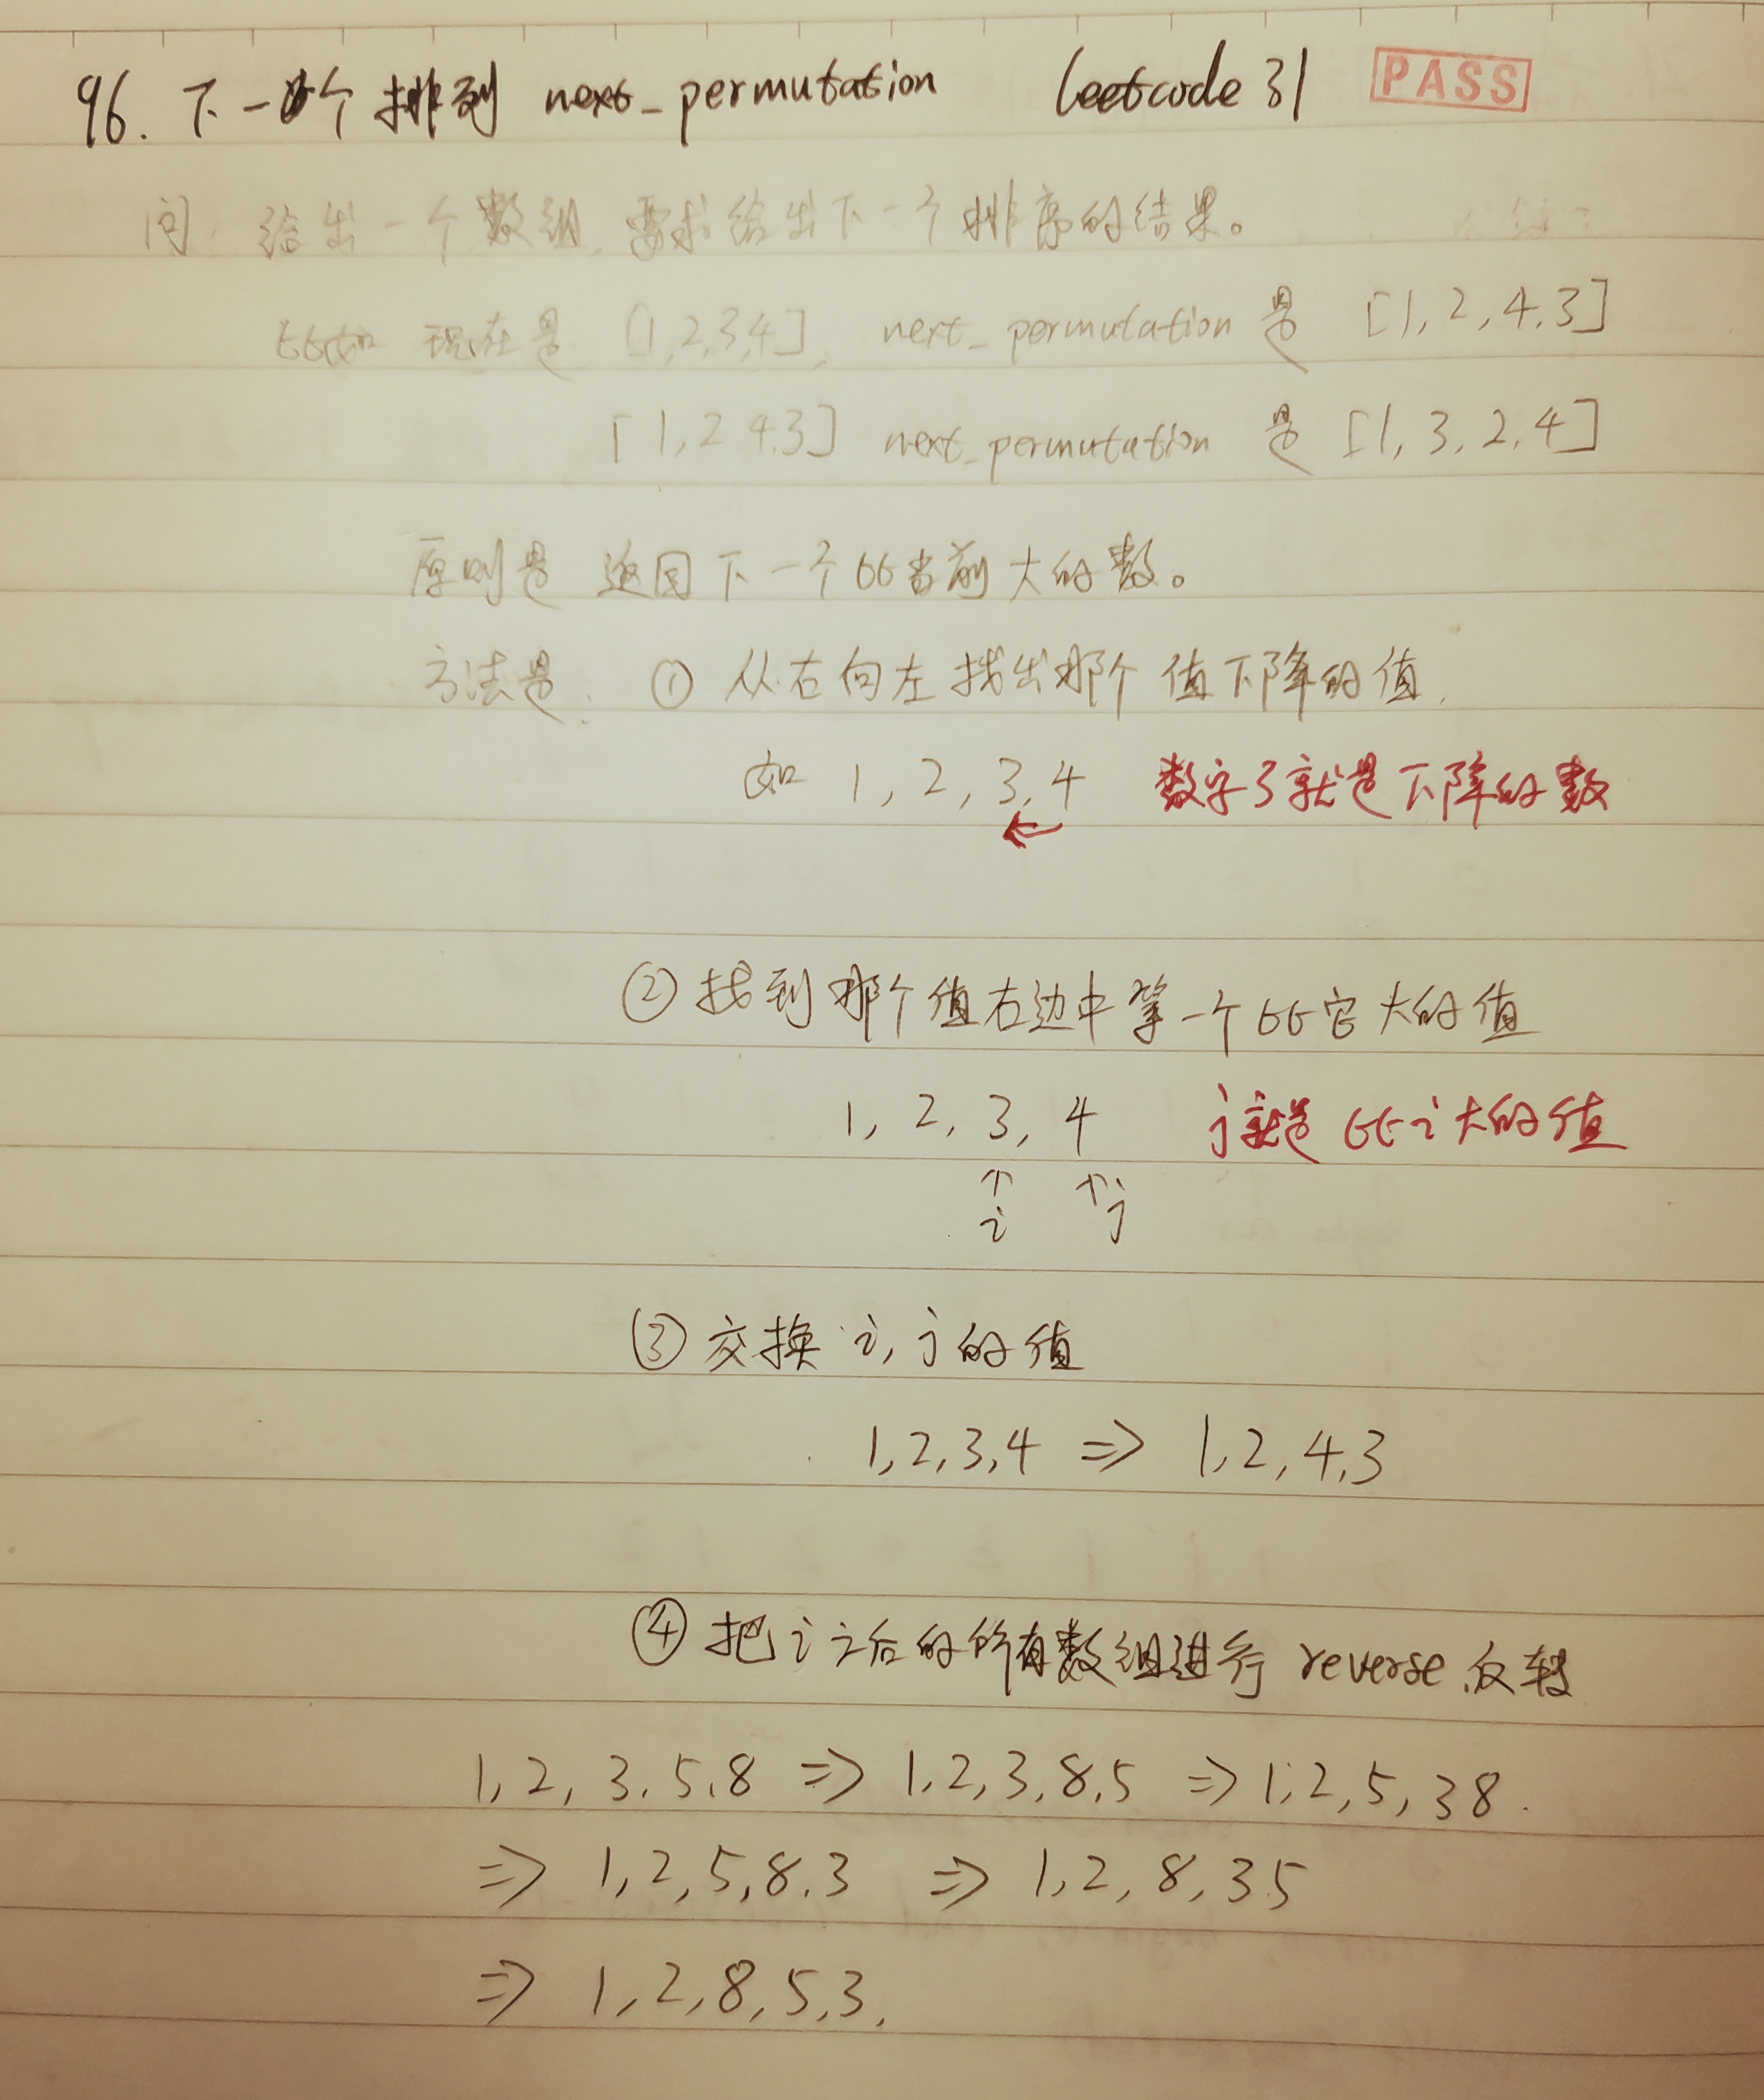 96. 下一个排列 next_permutation leetcode 31 PASS
问: 给出一个数组, 要求给出下一个排序的结果。
比如 现在是 [1,2,3,4], next_permutation 是 [1,2,4,3]
[1,2,4,3] next_permutation 是 [1,3,2,4]
原则是 返回下一个比当前大的数。
方法是: ① 从右向左找出那个值下降的值.
如 1,2,3,4 数字3就是下降的数
←
② 找到那个值右边中第一个比它大的值
1,2,3,4 j就是比i大的值
↑ ↑j
i
③ 交换 i, j的值
1,2,3,4 => 1,2,4,3
④ 把i之后的所有数组进行 reverse 反转
1,2,3,5,8 => 1,2,3,8,5 => 1,2,5,3 8.
=> 1,2,5,8,3 => 1,2,8,3 5
=> 1,2,8,5,3.